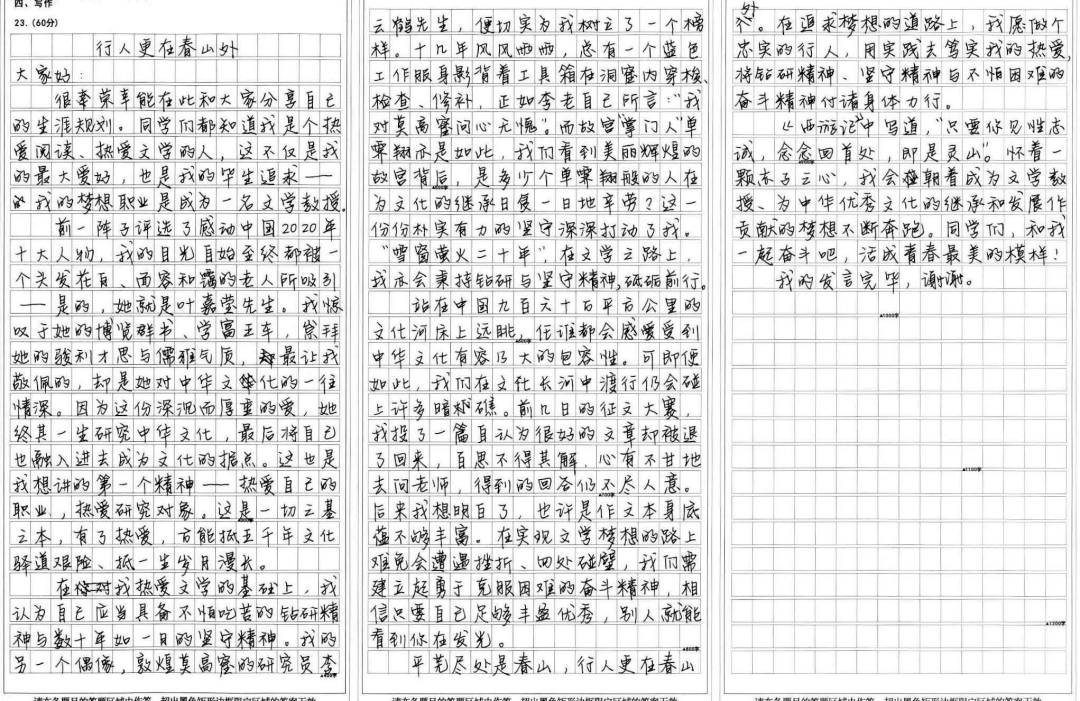 四、写作
23.（60分）
行人更在春山外
大家好：
很幸荣幸能在此和大家分享自己
的生涯规划。同学们都知道我是个热
爱阅读、热爱文学的人，这不仅是我
的最大爱好，也是我的毕生追求——
我的梦想职业是成为一名文学教授。
前一阵子评选了感动中国2020年
十大人物，我的目光自始至终都被一
个头发花白、面容和蔼的老人所吸引
——是的，她就是叶嘉莹先生。我惊
叹于她的博览群书、学富五车，崇拜
她的骏利才思与儒雅气质，最让我
敬佩的，却是她对中华文化的一往
情深。因为这份深沉而厚重的爱，她
终其一生研究中华文化，最后将自己
也融入进去成为文化的据点。这也是
我想讲的第一个精神——热爱自己的
职业，热爱研究对象。这是一切之基
之本，有了热爱，方能抵五千年文化
驿道艰险、抵一生岁月漫长。
在我热爱文学的基础上，我
认为自己应当具备不怕吃苦的钻研精
神与数十年如一日的坚守精神。我的
另一个偶像，敦煌莫高窟的研究员李
▲400字
云鹤先生，便切实为我树立了一个榜
样。十几年风风雨雨，总有一个蓝色
工作服身影背着工具箱在洞窟内穿梭、
检查、修补，正如李老自己所言：“我
对莫高窟问心无愧”。而故宫“掌门人”单
霁翔亦是如此，我们看到美丽辉煌的
故宫背后，是多少个单霁翔般的人在
为文化的继承日复一日地辛劳？这一
份份朴实有力的坚守深深打动了我。
“雪窗萤火二十年”，在文学之路上，
我亦会秉持钻研与坚守精神，砥砺前行。
站在中国九百六十万平方公里的
文化河床上远眺，任谁都会感受到
▲600字
中华文化有容乃大的包容性。可即便
如此，我们在文化长河中渡行仍会碰
上许多暗礁。前几日的征文大赛，
我投了一篇自认为很好的文章却被退
了回来，百思不得其解，心有不甘地
去问老师，得到的回答仍不尽人意。
▲700字
后来我想明白了，也许是作文本身底
蕴不够丰富。在实现文学梦想的路上
难免会遭遇挫折、四处碰壁，我们需
建立起勇于克服困难的奋斗精神，相
信只要自己足够丰盈优秀，别人就能
看到你在发光。
▲800字
平芜尽处是春山，行人更在春山
外。在追求梦想的道路上，我愿做个
忠实的行人，用实践去笃实我的热爱，
将钻研精神、坚守精神与不怕困难的
奋斗精神付诸身体力行。
《西游记》中写道，“只要你见性志
诚，念念回首处，即是灵山”。怀着一
颗赤子之心，我会朝着成为文学教
授、为中华优秀文化的继承和发展作
贡献的梦想不断奔跑。同学们，和我
一起奋斗吧，活成青春最美的模样！
我的发言完毕，谢谢。
▲1000字
▲1100字
▲1200字
请在各题目的答题区域内作答，超出黑色矩形边框限定区域的答案无效
请在各题目的答题区域内作答，超出黑色矩形边框限定区域的答案无效
请在各题目的答题区域内作答，超出黑色矩形边框限定区域的答案无效